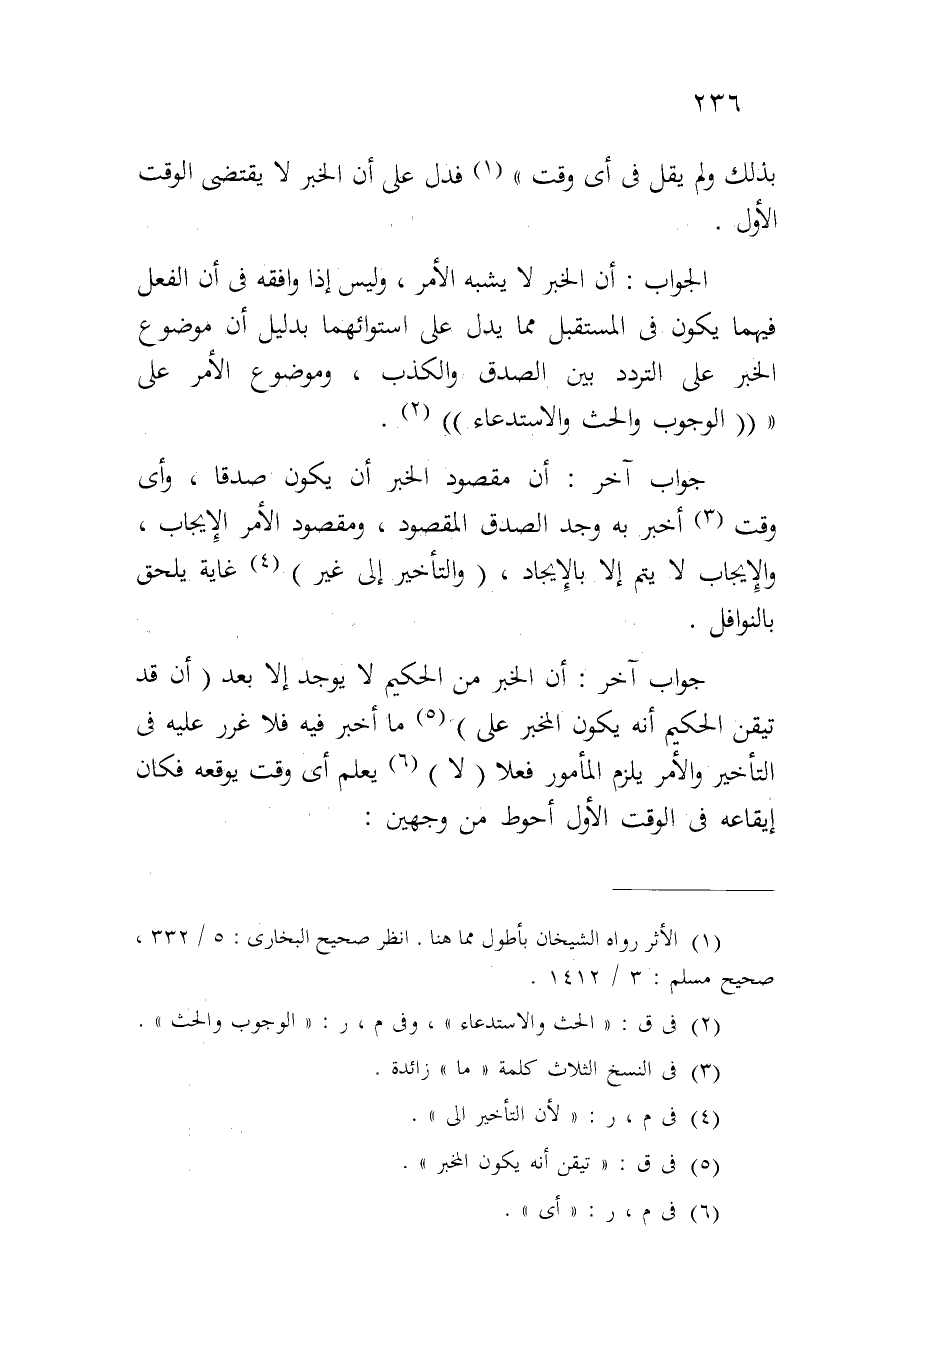 ٢٣٦
بذلك ولم يقل فى أى وقت » (١) فدل على أن الخبر لا يقتضى الوقت
الأول .
الجواب : أن الخبر لا يشبه الأمر ، وليس إذا وافقه فى أن الفعل
فيهما يكون فى المستقبل مما يدل على استوائهما بدليل أن موضوع
الخبر على التردد بين الصدق والكذب ، وموضوع الأمر على
« (( الوجوب والحث والاستدعاء )) (٢) .
جواب آخر : أن مقصود الخبر أن يكون صدقا ، وأى
وقت (٣) أخبر به وجد الصدق المقصود ، ومقصود الأمر الإيجاب ،
والإيجاب لا يتم إلا بالإيجاد ، ( والتأخير إلى غير ) (٤) غاية يلحق
بالنوافل .
جواب آخر : أن الخبر من الحكيم لا يوجد إلا بعد ( أن قد
تيقن الحكيم أنه يكون المخبر على ) (٥) ما أخبر فيه فلا غرر عليه فى
التأخير والأمر يلزم المأمور فعلا ( لا ) (٦) يعلم أى وقت يوقعه فكان
إيقاعه فى الوقت الأول أحوط من وجهين :
(١) الأثر رواه الشيخان بأطول مما هنا . انظر صحيح البخارى : ٥ / ٣٣٢ ،
صحيح مسلم : ٣ / ١٤١٢ .
(٢) فى ق : « الحث والاستدعاء » ، وفى م ، ر : « الوجوب والحث » .
(٣) فى النسخ الثلاث كلمة « ما » زائدة .
(٤) فى م ، ر : « لأن التأخير الى » .
(٥) فى ق : « تيقن أنه يكون المخبر » .
(٦) فى م ، ر : « أى » .